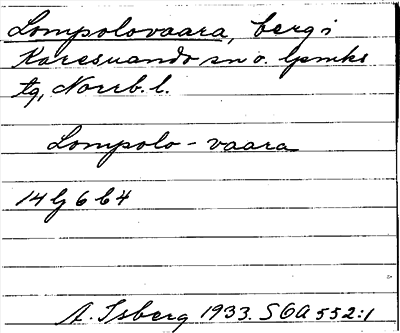 Lompolovaara, berg i
Karesuando sn o. lpmks
tg, Norrb. l.
Lompolo - vaara
14 lj 6 b 4
A. Isberg 1933. SOA 552:1